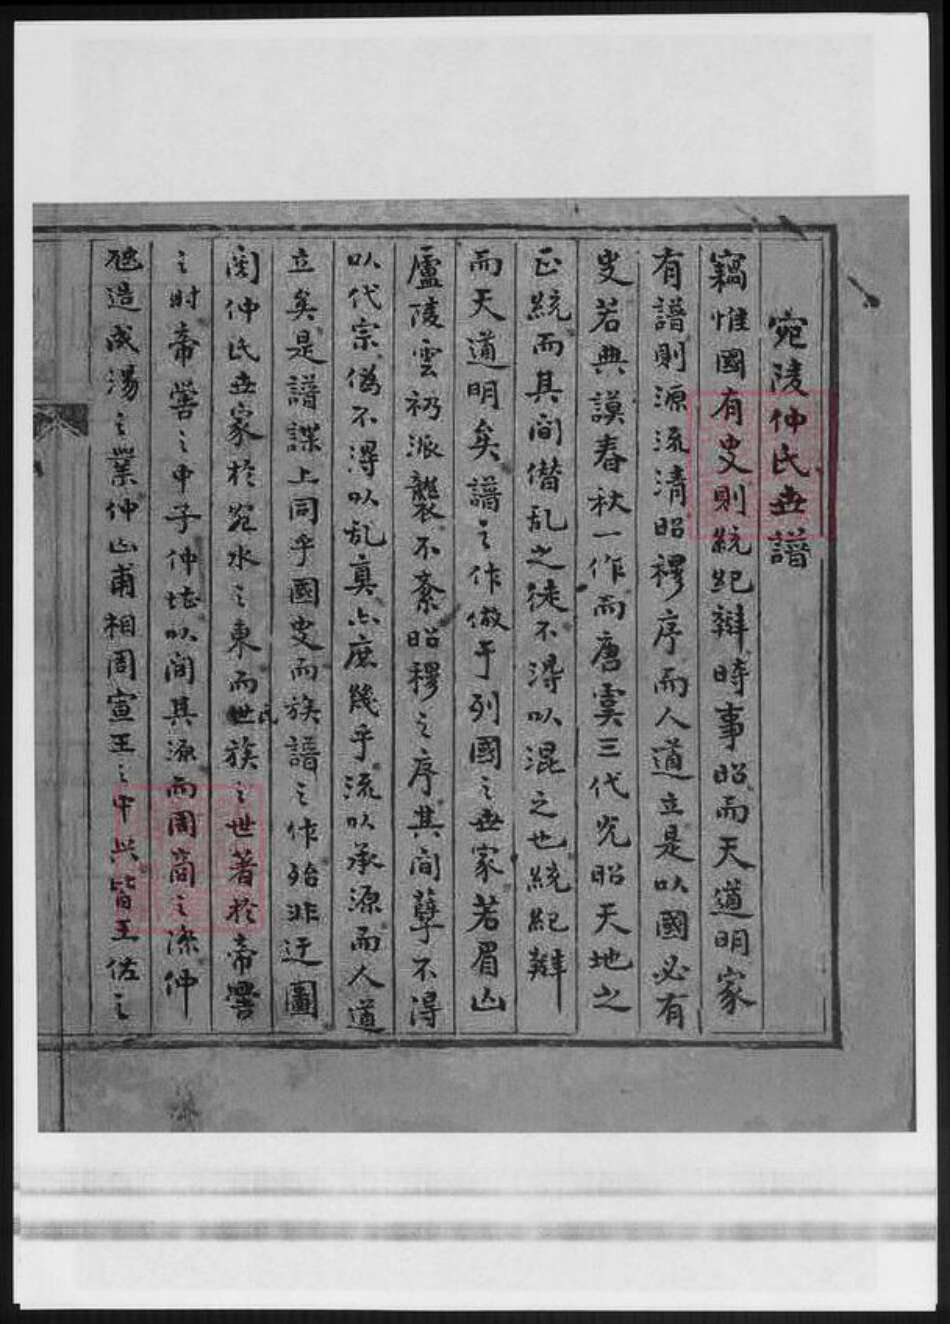 宛陵仲氏世譜
竊惟國有史則統紀辯時事昭而天道明家
有譜則源流清昭穆序而人道立是以國必有
史若典謨春秋一作而唐虞三代光昭天地之
正統而其間僣乱之徒不淂以混之也統紀辯
而天道明矣譜之作倣于列國之世家若眉山
廬陵雲礽派襲不紊昭穆之序其間孽不淂
以代宗偽不淂以乱真亦庶幾乎流以承源而人道
立矣是譜諜上同乎國史而族譜之作殆非迂圖
閱仲氏世家於宛水之東而世氏族之世著於帝嚳
之時帝嚳之中子仲堪以間其源而周商之際仲
虺造成湯之業仲山甫相周宣王之中兴皆王佐之